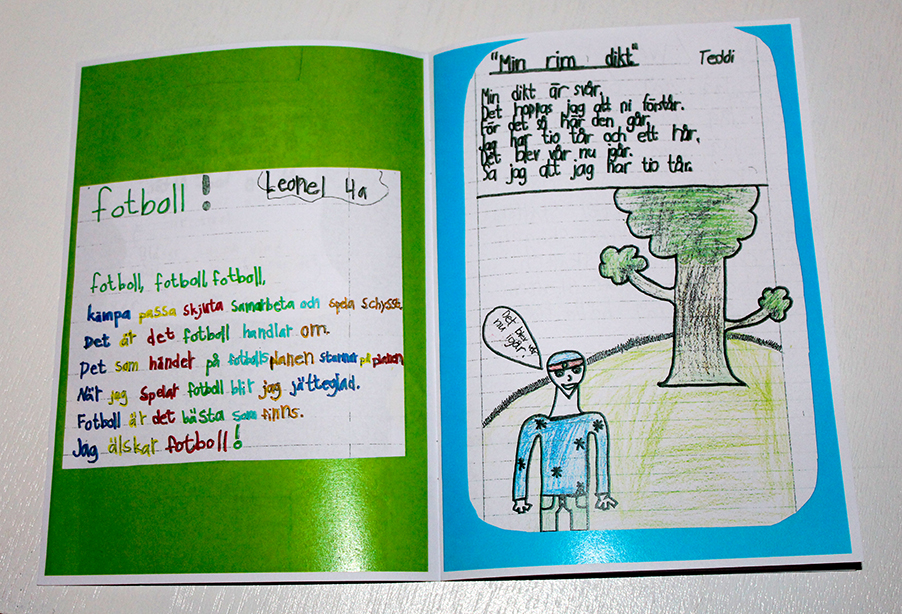 fotboll !
Leonel 4a
fotboll, fotboll, fotboll,
kämpa passa skjuta samarbeta och spela schysst.
Det är det fotboll handlar om.
Det som händer på fotbollsplanen stannar på planen
När jag spelar fotboll blir jag jätteglad.
Fotboll är det bästa som finns.
Jag älskar fotboll!
"Min rim dikt"
Teddi
Min dikt är svår.
Det hoppas jag att ni förstår.
För det så här den går.
Jag har tio tår och ett hår.
Det blev vår nu igår.
Så jag att jag har tio tår.
Det blev vår
nu igår.